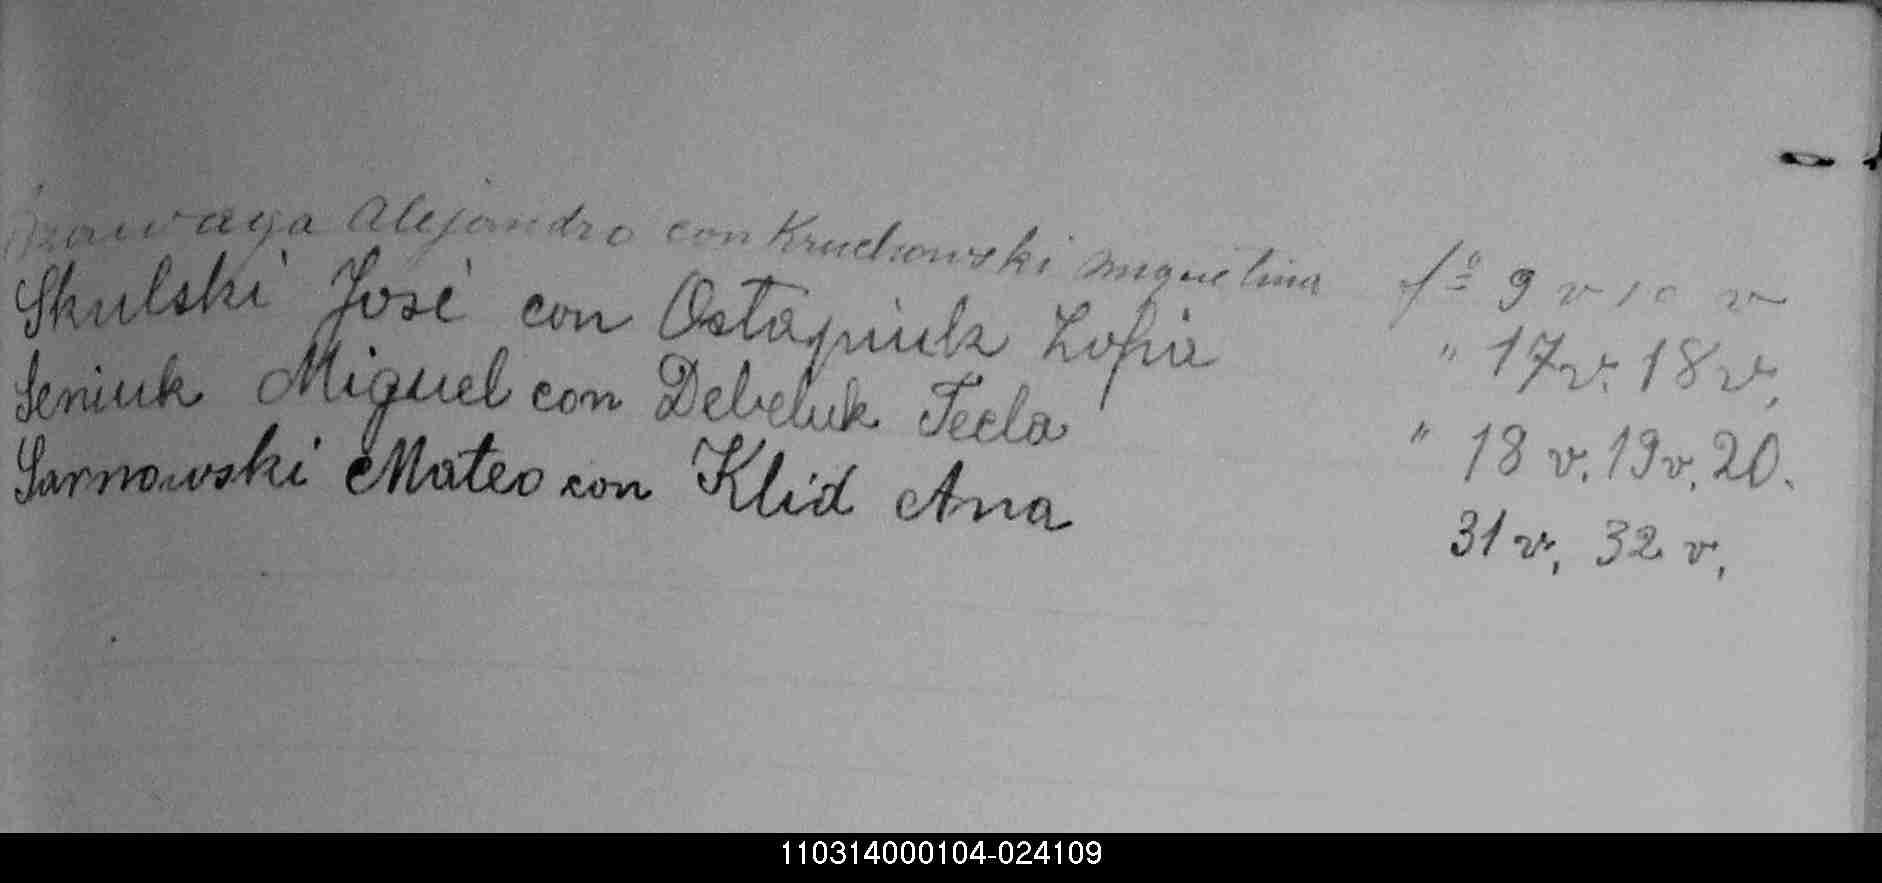 Alejandro con Kruchowski Miguelina fº 9 v 10 v
Skulski José con Ostapiuk Zofia " 17 v. 18 v,
Seniuk Miguel con Debeluk Tecla " 18 v. 19 v, 20.
Sarnowski Mateo con Klid Ana 31 v, 32 v,
110314000104-024109